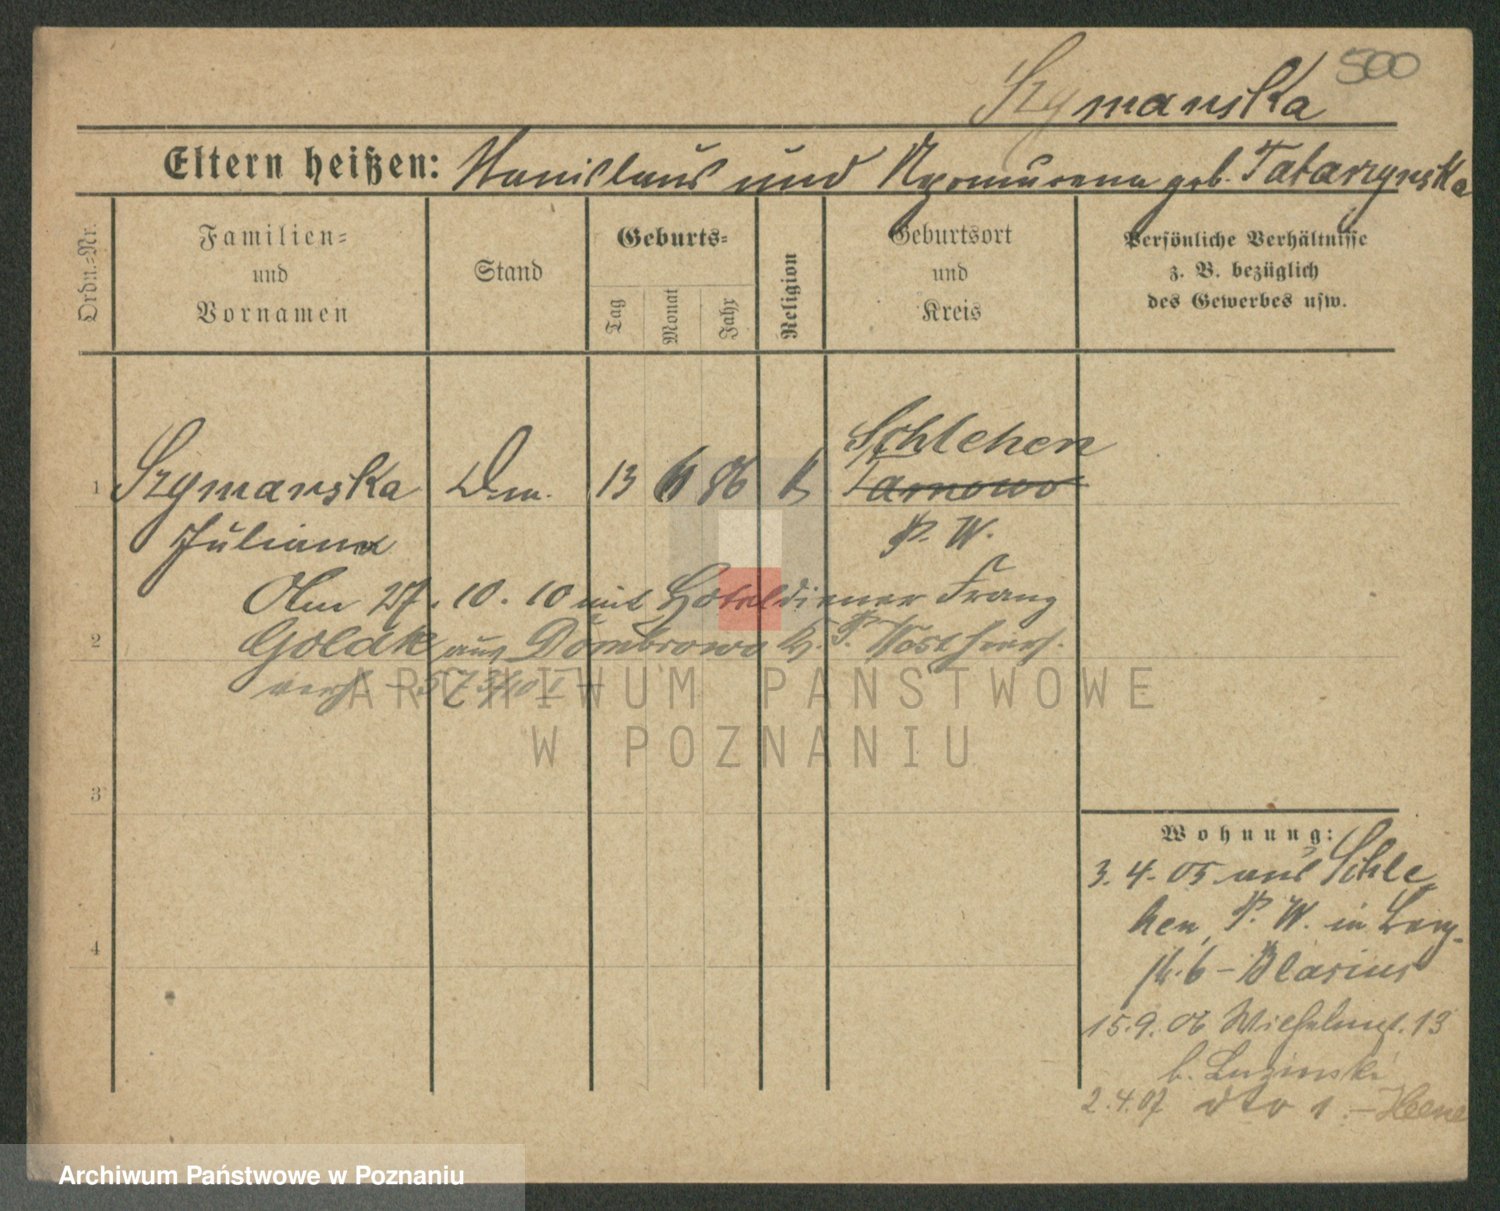 500
Szymanska
Eltern heißen: Stanislaus und Nepomucena geb. Tatarzynska
Ordn.-Nr.
Familien-
und
Vornamen
Stand
Geburts-
Tag
Monat
Jahr
Religion
Geburtsort
und
Kreis
Persönliche Verhältnisse
z. B. bezüglich
des Gewerbes usw.
Schlehen
1 Szymanska 13 86 k Tarnowo
Juliana P. W.
Am 27. 10. 10 mit Hoteldiener Franz
2 aus Dombrowo K. P. West
verh.
3
4
Wohnung:
3. 4. 05 aus Schle
hen, P. W. in Berg-
str. 6 - Blasius
15. 9. 06 Wilhelmst. 13
b. Luzinski
2. 4. 07 dto 1. -
ARCHIWUM PAŃSTWOWE
W POZNANIU
Archiwum Państwowe w Poznaniu